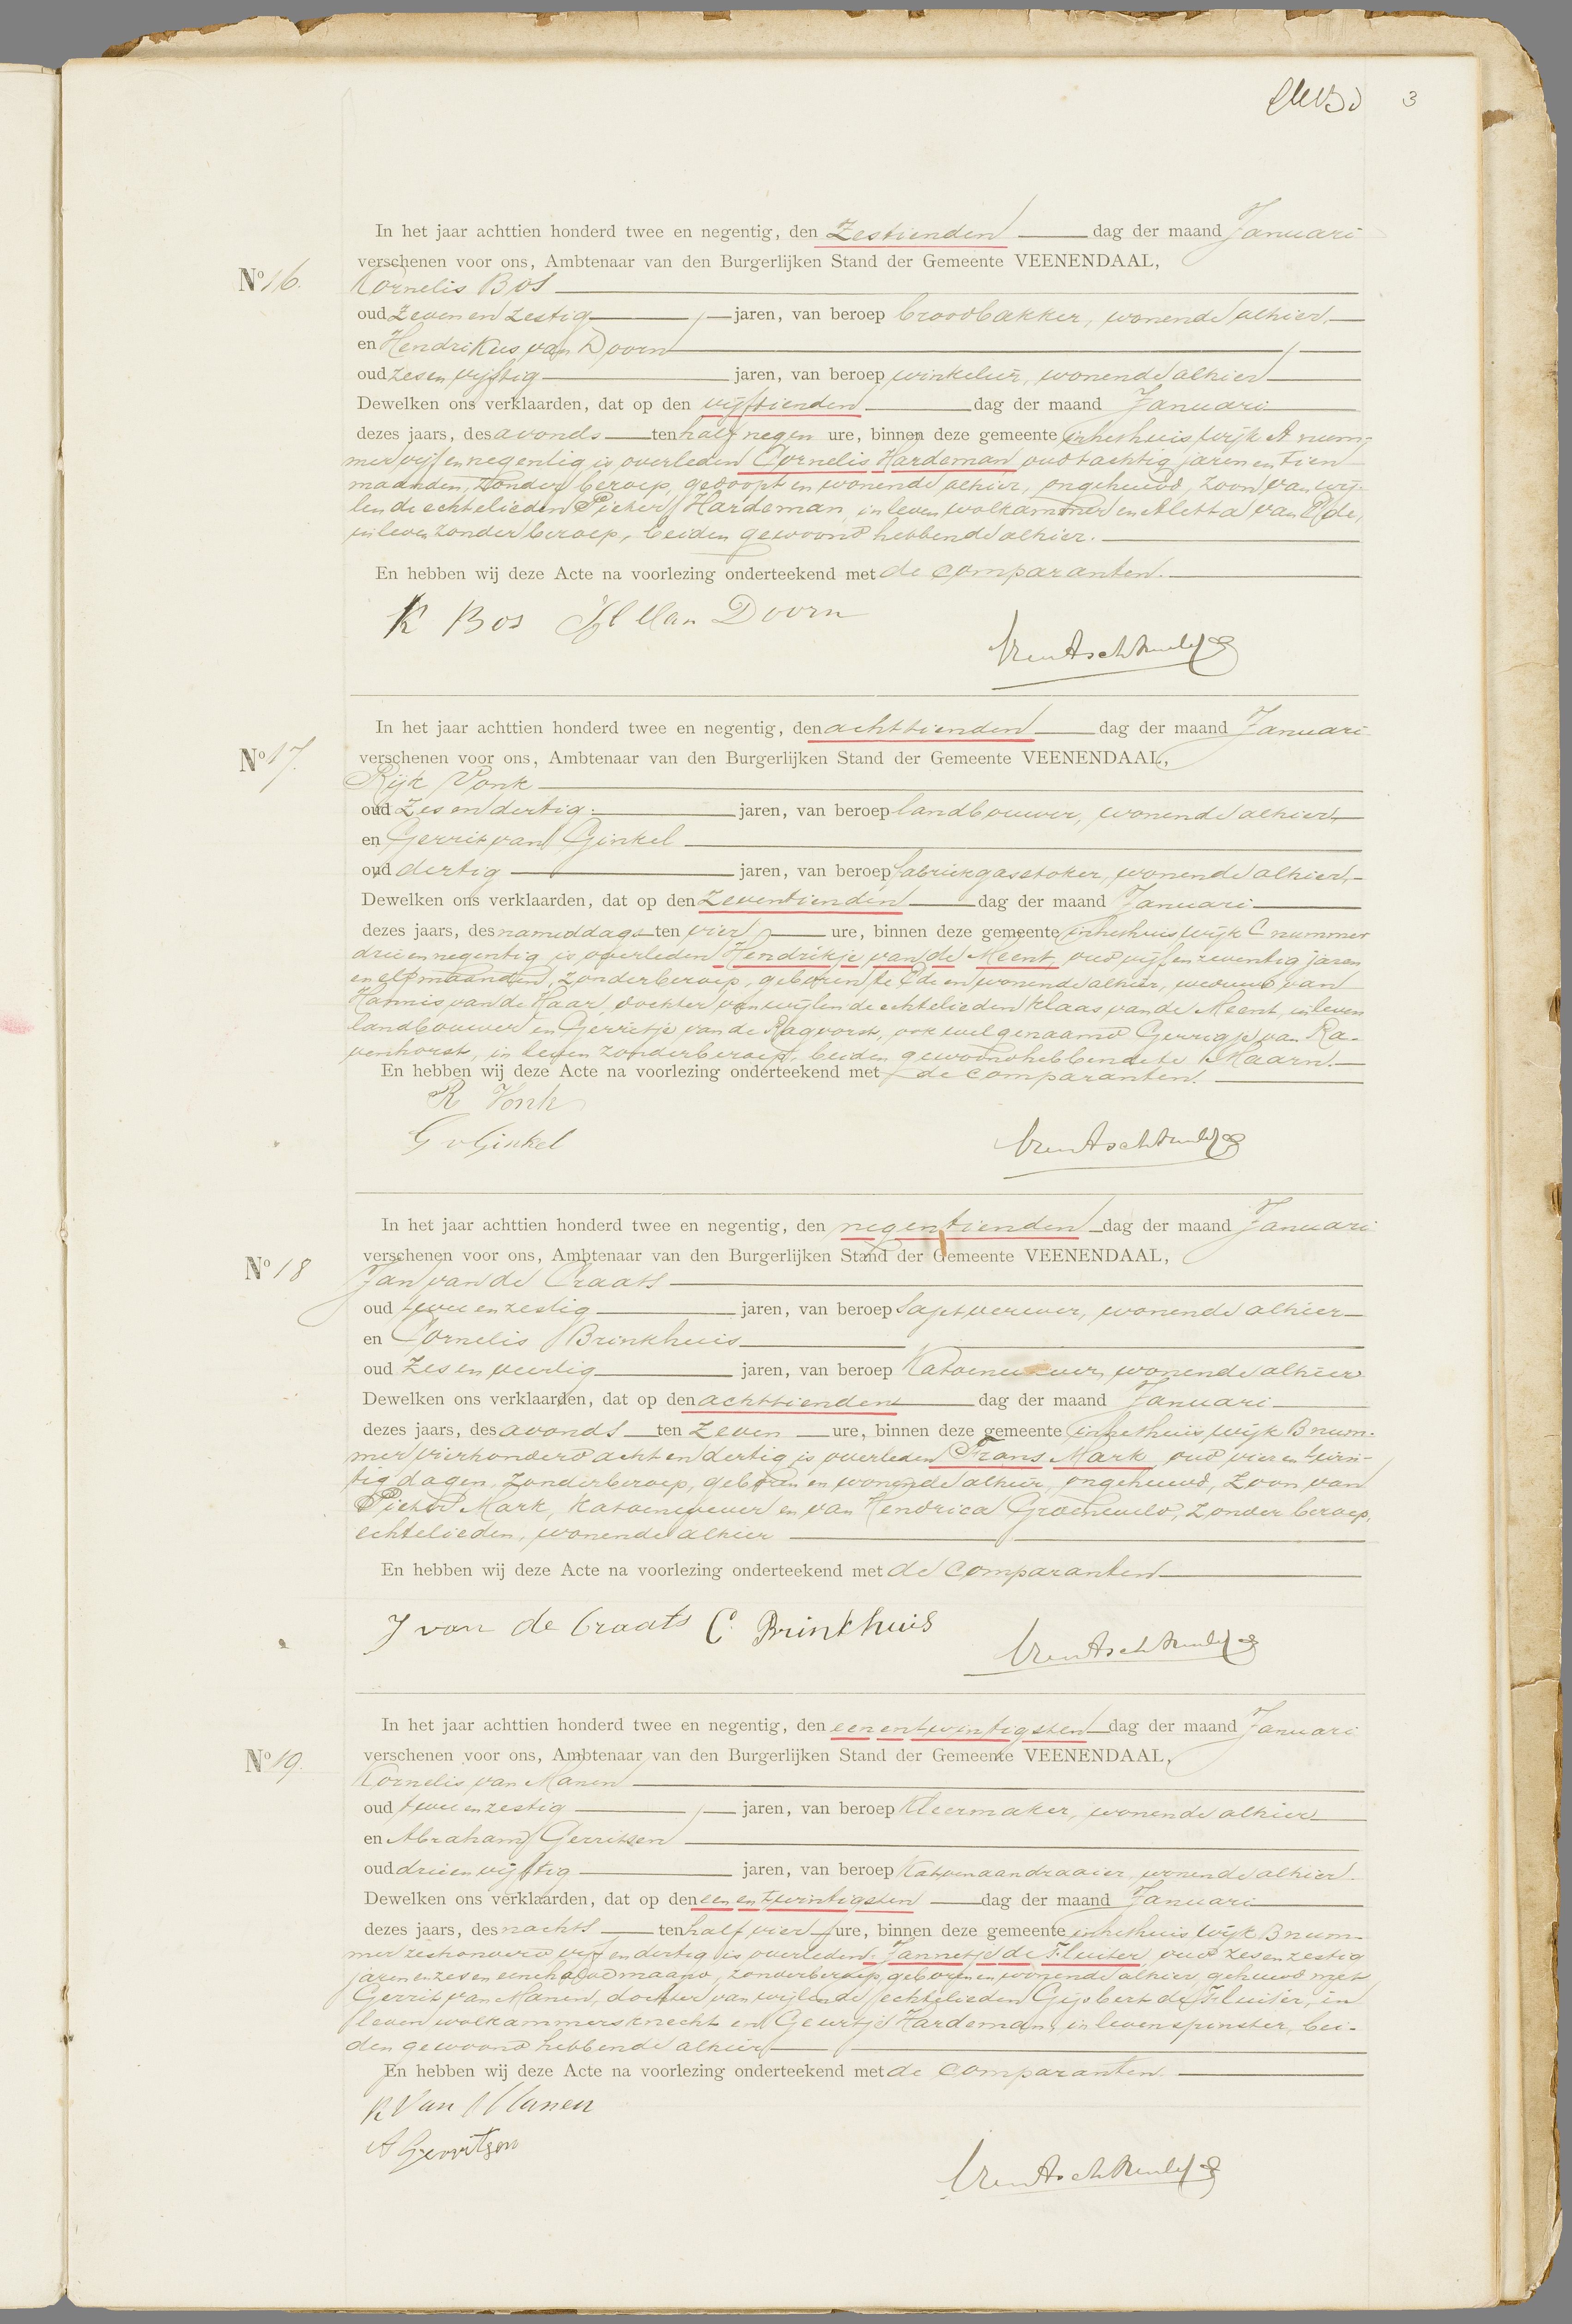 3
In het jaar achttien honderd twee en negentig, den Zestienden dag der maand Januari
verschenen voor ons, Ambtenaar van den Burgerlijken Stand der Gemeente VEENENDAAL,
No 16.
Kornelis Bos
oud Zeven en Zestig jaren, van beroep broodbakker, wonende alhier
en Hendrikus van Doorn
oud zes en vijftig jaren, van beroep winkelier, wonende alhier
Dewelken ons verklaarden, dat op den vijftienden dag der maand Januari
dezes jaars, des avonds ten half negen ure, binnen deze gemeente in het huis wijk A num-
mer vijf en negentig is overleden Cornelis Hardeman oud tachtig jaren en tien
maanden, zonder beroep, gedoopt en wonende alhier, ongehuwd, zoon van wij-
len de echtelieden Pieter Hardeman, in leven wolkammer en Aletta van Ede,
in leven zonder beroep, beiden gewoond hebbende alhier.
En hebben wij deze Acte na voorlezing onderteekend met de comparanten.
K Bos H Van Doorn
In het jaar achttien honderd twee en negentig, den achttienden dag der maand Januari
No 17.
verschenen voor ons, Ambtenaar van den Burgerlijken Stand der Gemeente VEENENDAAL,
Rijk Vonk
oud Zes en dertig jaren, van beroep landbouwer, wonende alhier
en Gerrit van Ginkel
oud dertig jaren, van beroep fabriekgasstoker, wonende alhier,
Dewelken ons verklaarden, dat op den Zeventienden dag der maand Januari
dezes jaars, des namiddags ten vier ure, binnen deze gemeente in het huis wijk C nummer
drie en negentig is overleden Hendrikje van de Meent, oud vijf en zeventig jaren
en elf maanden, zonder beroep, geboren te Ede en wonende alhier, weduwe van
Hannis van de Haar, dochter van wijlen de echtelieden Klaas van de Meent, in leven
landbouwer en Gerritje van de Ragvorst, ook wel genaamd Gerrigje van Ra-
venhorst, in leven zonder beroep, beiden gewoond hebbende te Maarn.
En hebben wij deze Acte na voorlezing onderteekend met de comparanten.
R Vonk
G v Ginkel
In het jaar achttien honderd twee en negentig, den negentienden dag der maand Januari
verschenen voor ons, Ambtenaar van den Burgerlijken Stand der Gemeente VEENENDAAL,
No 18
Jan van de Craats
oud twee en zestig jaren, van beroep Sajetverwer, wonende alhier
en Cornelis Brinkhuis
oud Zes en veertig jaren, van beroep Katoenwever, wonende alhier
Dewelken ons verklaarden, dat op den achttienden dag der maand Januari
dezes jaars, des avonds ten Zeven ure, binnen deze gemeente in het huis wijk B num-
mer vierhonderd acht en dertig is overleden Frans Mark oud vier en twin-
tig dagen, zonder beroep, geboren en wonende alhier, ongehuwd, Zoon van
Pieter Mark, Katoenwever en van Hendrica Groeneveld, zonder beroep,
echtelieden, wonende alhier
En hebben wij deze Acte na voorlezing onderteekend met de comparanten
J van de Craats C. Brinkhuis
In het jaar achttien honderd twee en negentig, den een en twintigsten dag der maand Januari
verschenen voor ons, Ambtenaar van den Burgerlijken Stand der Gemeente VEENENDAAL,
No 19.
Kornelis van Manen
oud twee en zestig jaren, van beroep Kleermaker, wonende alhier
en Abraham Gerritsen
oud drie en vijftig jaren, van beroep Katoenaandraaier, wonende alhier
Dewelken ons verklaarden, dat op den een en twintigsten dag der maand Januari
dezes jaars, des nachts ten half vier ure, binnen deze gemeente in het huis wijk B num-
mer zeshonderd vijf en dertig is overleden Jannetje de Fluiter, oud zes en zestig
jaren en zes en eenehalve maand, zonder beroep, geboren en wonende alhier, gehuwd met
Gerrit van Manen, dochter van wijlen de echtelieden Gijsbert de Fluiter, in
leven wolkammersknecht en Geurtje Hardeman, in leven spinster, bei-
den gewoond hebbende alhier
En hebben wij deze Acte na voorlezing onderteekend met de comparanten.
K Van Manen
A Gerritsen